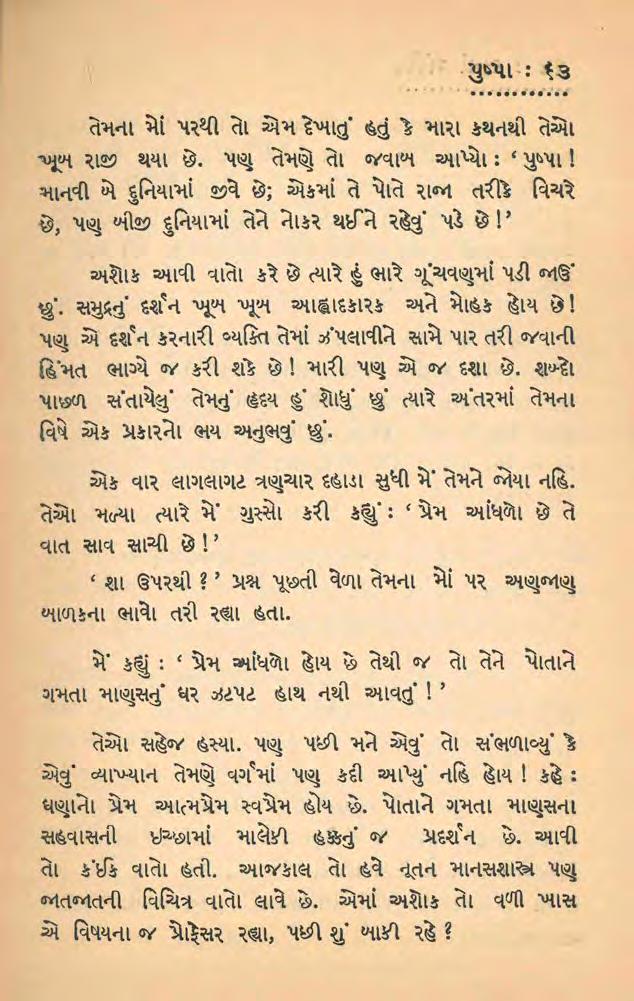 પુષ્પા : ૬૩
તેમના મોં પરથી તો એમ દેખાતું હતું કે મારા કથનથી તેઓ
ખૂબ રાજી થયા છે. પણ તેમણે તો જવાબ આપ્યો : ‘ પુષ્પા !
માનવી બે દુનિયામાં જીવે છે; એકમાં તે પોતે રાજા તરીકે વિચરે
છે, પણ બીજી દુનિયામાં તેને નોકર થઈને રહેવું પડે છે !’
અશોક આવી વાતો કરે છે ત્યારે હું ભારે ગૂંચવણમાં પડી જાઉં
છું. સમુદ્રનું દર્શન ખૂબ ખૂબ આહ્લાદકારક અને મોહક હોય છે !
પણ એ દર્શન કરનારી વ્યક્તિ તેમાં ઝંપલાવીને સામે પાર તરી જવાની
હિંમત ભાગ્યે જ કરી શકે છે ! મારી પણ એ જ દશા છે. શબ્દો
પાછળ સંતાયેલું તેમનું હૃદય હું શોધું છું ત્યારે અંતરમાં તેમના
વિષે એક પ્રકારનો ભય અનુભવું છું.
એક વાર લાગલાગટ ત્રણચાર દહાડા સુધી મેં તેમને જોયા નહિ.
તેઓ મળ્યા ત્યારે મેં ગુસ્સો કરી કહ્યું : ‘ પ્રેમ આંધળો છે તે
વાત સાવ સાચી છે !’
‘ શા ઉપરથી ?’ પ્રશ્ન પૂછતી વેળા તેમના મોં પર અણજાણ
બાળકના ભાવો તરી રહ્યા હતા.
મેં કહ્યું : ‘ પ્રેમ આંધળો હોય છે તેથી જ તો તેને પોતાને
ગમતા માણસનું ઘર ઝટપટ હાથ નથી આવતું ! ’
તેઓ સહેજ હસ્યા. પણ પછી મને એવું તો સંભળાવ્યું કે
એવું વ્યાખ્યાન તેમણે વર્ગમાં પણ કદી આપ્યું નહિ હોય ! કહે :
ઘણાનો પ્રેમ આત્મપ્રેમ સ્વપ્રેમ હોય છે. પોતાને ગમતા માણસના
સહવાસની ઇચ્છામાં માલેકી હક્કનું જ પ્રદર્શન છે. આવી
તો કંઈક વાતો હતી. આજકાલ તો હવે નૂતન માનસશાસ્ત્ર પણ
જાતજાતની વિચિત્ર વાતો લાવે છે. એમાં અશોક તો વળી ખાસ
એ વિષયના જ પ્રોફેસર રહ્યા, પછી શું બાકી રહે ?